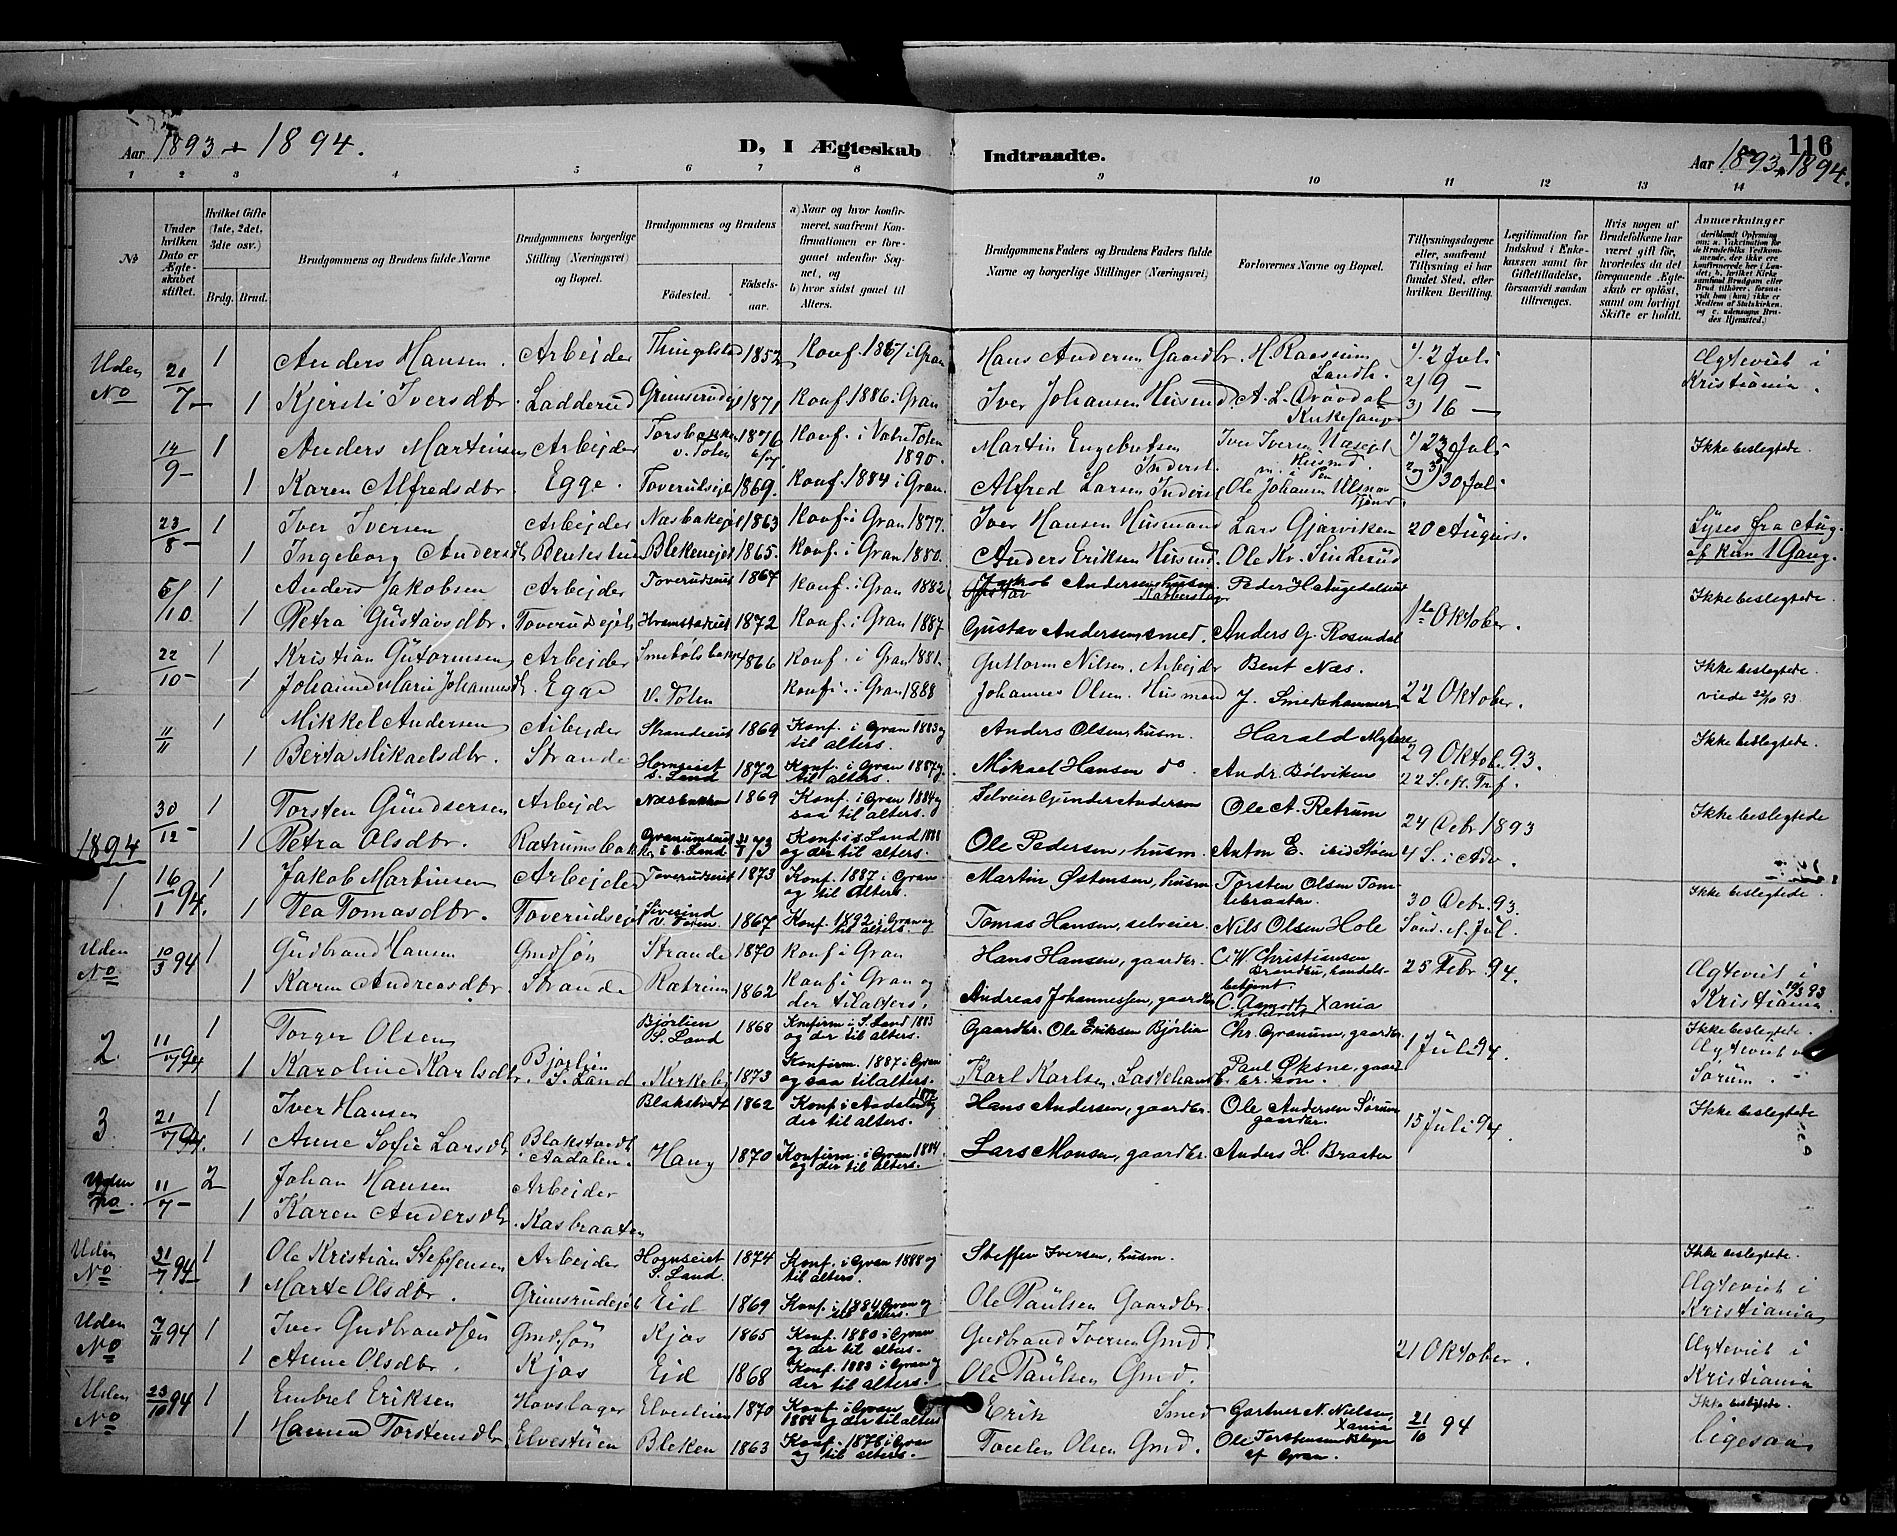 Aar 1893 + 1894.
D, I Ægteskab Indtraadte.
116
Aar 1893 + 1894.
1 2 3 4 5 6 7 8 9 10 11 12 13 14
No
Under hvilken Dato er Ægteskabet stiftet.
Hvilket Gifte (1ste, 2det, 3dte osv.)
Brdg. Brud.
Brudgommens og Brudens fulde Navne
Brudgommens borgerlige Stilling (Næringsvei) og Bopæl.
Brudgommens og Brudens
Fødested.
Fødselsaar.
a) Naar og hvor konfirmeret, saafremt Konfirmationen er foregaaet udenfor Sognet, og
b) hvor sidst gaaet til Alters.
Brudgommens Faders og Brudens Faders fulde Navne og borgerlige Stillinger (Næringsvei)
Forlovernes Navne og Bopæl.
Tillysningsdagene eller, saafremt Tillysning ei har fundet Sted, efter hvilken Bevilling.
Legitimation for Indskud i Enkekassen samt for Giftetilladelse, forsaavidt saadan tiltrænges.
Hvis nogen af Brudefolkene har været gift før, hvorledes da det foregaaende Ægteskab er opløst, samt om lovligt Skifte er holdt.
Anmærkninger
Uden No 21/7 1 Anders Hansen. Arbejder Thingelstad 1852 Konf. 1867 i Gran Hans Andersen Gaardbr. H. Raassum Landh. 1) 2 Juli Ægteviet i
1 Kjersti Iversdbr. Ladderud 1871 Konf. 1886 i Gran Iver Johansen Husmd. 2) 9 — Kristiania.
3) 16 —
14/9 1 Anders Martinsen Arbejder Torsbakken v. Toten 1876 Konf. i Vestre Toten 1890. Martin Engebretsen Inderst. 1) 23 Juli Ikke beslegtede.
1 Karen Alfredsdbr. Egge. Toverudsejet 1869. Konf. 1884 i Gran. Alfred Larsen Inderst 2 og 3) 30 Juli
23/8 1 Iver Iversen Arbejder Næsbakejet 1863 Konf. i Gran 1877. Iver Hansen Husmand Lars Gjarviken 20 August. Lyses fra Aug.
1 Ingeborg Andersdt. Blekenejet 1865. Konf. i Gran 1880. Anders Eriksen Husmd. af kun 1 Gang.
5/10 1 Anders Jakobsen Arbejder Toverudseiet 1867 Konf. i Gran 1882 Jakob Andersen husm. Ikke beslegtede.
1 Petra Gustavsdbr. Toverudsejet 1872 Konf. i Gran 1887 Gustav Andersen smed. Anders G. Rosendal 1ste Oktober.
22/10 1 Kristian Gutormsen Arbejder 1866 Konf. i Gran 1881. Guttorm Nilsen. Arbejdr Bent Næs. Ikke beslegtede
1 Johanne Marie Johannesdt. Egge V. Toten Konf. i Gran 1888 Johannes Olsen. Husmand J. Smedshammer 22 Oktober. viede 22/10 93
11/11 1 Mikkel Andersen Arbejder Strandseiet 1869 Konf. i Gran 1883 og til alters. Anders Olsen, husm. Harald 29 Oktob. 93. Ikke beslegtede.
1 Berta Mikaelsdbr. Strande S. Land 1872 Konf. i Gran 1887 og til alters. Mikael Hansen do Andr. Bølviken 22 S. ef. Tref.
30/12 1 Torsten Gundersen Arbejdr 1869 Konf. i Gran 1884 og saa til alters. Selveier Gunder Andersen Ole A. Retrum 24 Debr 1893 Ikke beslegtede
1 Petra Olsdbr. Rætrumsbakken Granumseiet i S. Land 73 Konf. i S. Land 1888 og der til alters. Ole Pedersen, husm. Anton E. 4 S. i Adv.
1894
1. 16/1 94. 1 Jakob Martinsen Arbejder Toverudseiet 1873 Konf. 1887 i Gran og til Alters. Martin Østensen, husm Torsten Olsen Tomlebraaten. 30 Debr. 93. Ikke beslegtede
1 Tea Tomasdbr. Toverudsejet V. Toten. 1867 Konf. 1892 i Gran og til alters. Tomas Hansen, selveier Nils Olsen Hole Sønd. ef. Jul.
Uden No 10/3 94 1 Gudbrand Hansen Gmdsøn Strande 1870 Konf i Gran Hans Hansen, gaardbr. C. W. Christiansen Brandbu, handelsbetjent 25 Febr. 94. Ægteviet i
1 Karen Andreasdbr. Strande Rætrum 1862 Konf i Gran og der til alters. Andreas Johannessen, gaardbr. C. Xania Kristiania 10/3 93
2 11/7 94 1 Torger Olsen Bjørlien S. Land 1868 Konfirm. i S. Land 1883 og der til alters. Gaardbr. Ole Eriksen Bjørlien Chr. Granum, gaardbr. 1 Juli 94. Ikke beslegtede. Ægteviet
1 Karoline Karlsdbr. Bjørlien S. Land 1873 Konfirm. 1887 i Gran og saa til alters. Karl Karlsen Paul Øksne, gaardbr. søn. Sørum.
3 21/7 94. 1 Iver Hansen Blakstvedt 1862 Konf. i Aadalen 1877 og der til alters. Hans Andersen, gaardbr. Ole Andersen Sørum gaardbr. 15 Juli 94. Ikke beslegtede
1 Anne Sofie Larsdt Blakstvedt Aadalen. Haug 1870 Konfirm. i Gran 1884 og der til Alters. Lars Monsen, gaardbr. Anders H. Braaten
Uden No. 11/7 2 Johan Hansen Arbejder
1 Karen Andersdbr. Kasbraaten
Uden No 31/7 94 1 Ole Kristian Steffensen Arbejder S. Land. 1874 Konf. i Gran 1888 og til alters. Steffen Iversen, husm. Ikke beslegtede.
1 Marte Olsdbr. Grimsrudejet Eid 1869 Konf. i 1884 Gran og til alters. Ole Paulsen Gaardbr. Ægteviet i Kristiania
Uden No 7/11 94 1 Iver Gudbrandsen Gmdsøn Kjos 1865 Konf. 1880 i Gran og der til alters. Gudbrand Iversen Gmd. 21 Oktober. Ægteviet i
1 Anne Olsdbr. Kjos Eid 1868 Konf. 1883 i Gran og der til alters. Ole Paulsen Gmd. Kristiania
Uden No 23/10 94 1 Embret Eriksen Hovslager Elvestuen 1870 Konf. i Gran 1884 og der til alters Erik Smed Gartner N. Nielsen, Xania 21/10 94 Ikke beslegtede.
1 Hanna Torstensdbr. Elvestuen Bleken 1863 Konf. 1878 i Gran og til alters. Olsen Gmd. Ole Torstensen Bleken af Gran. Ligesaa